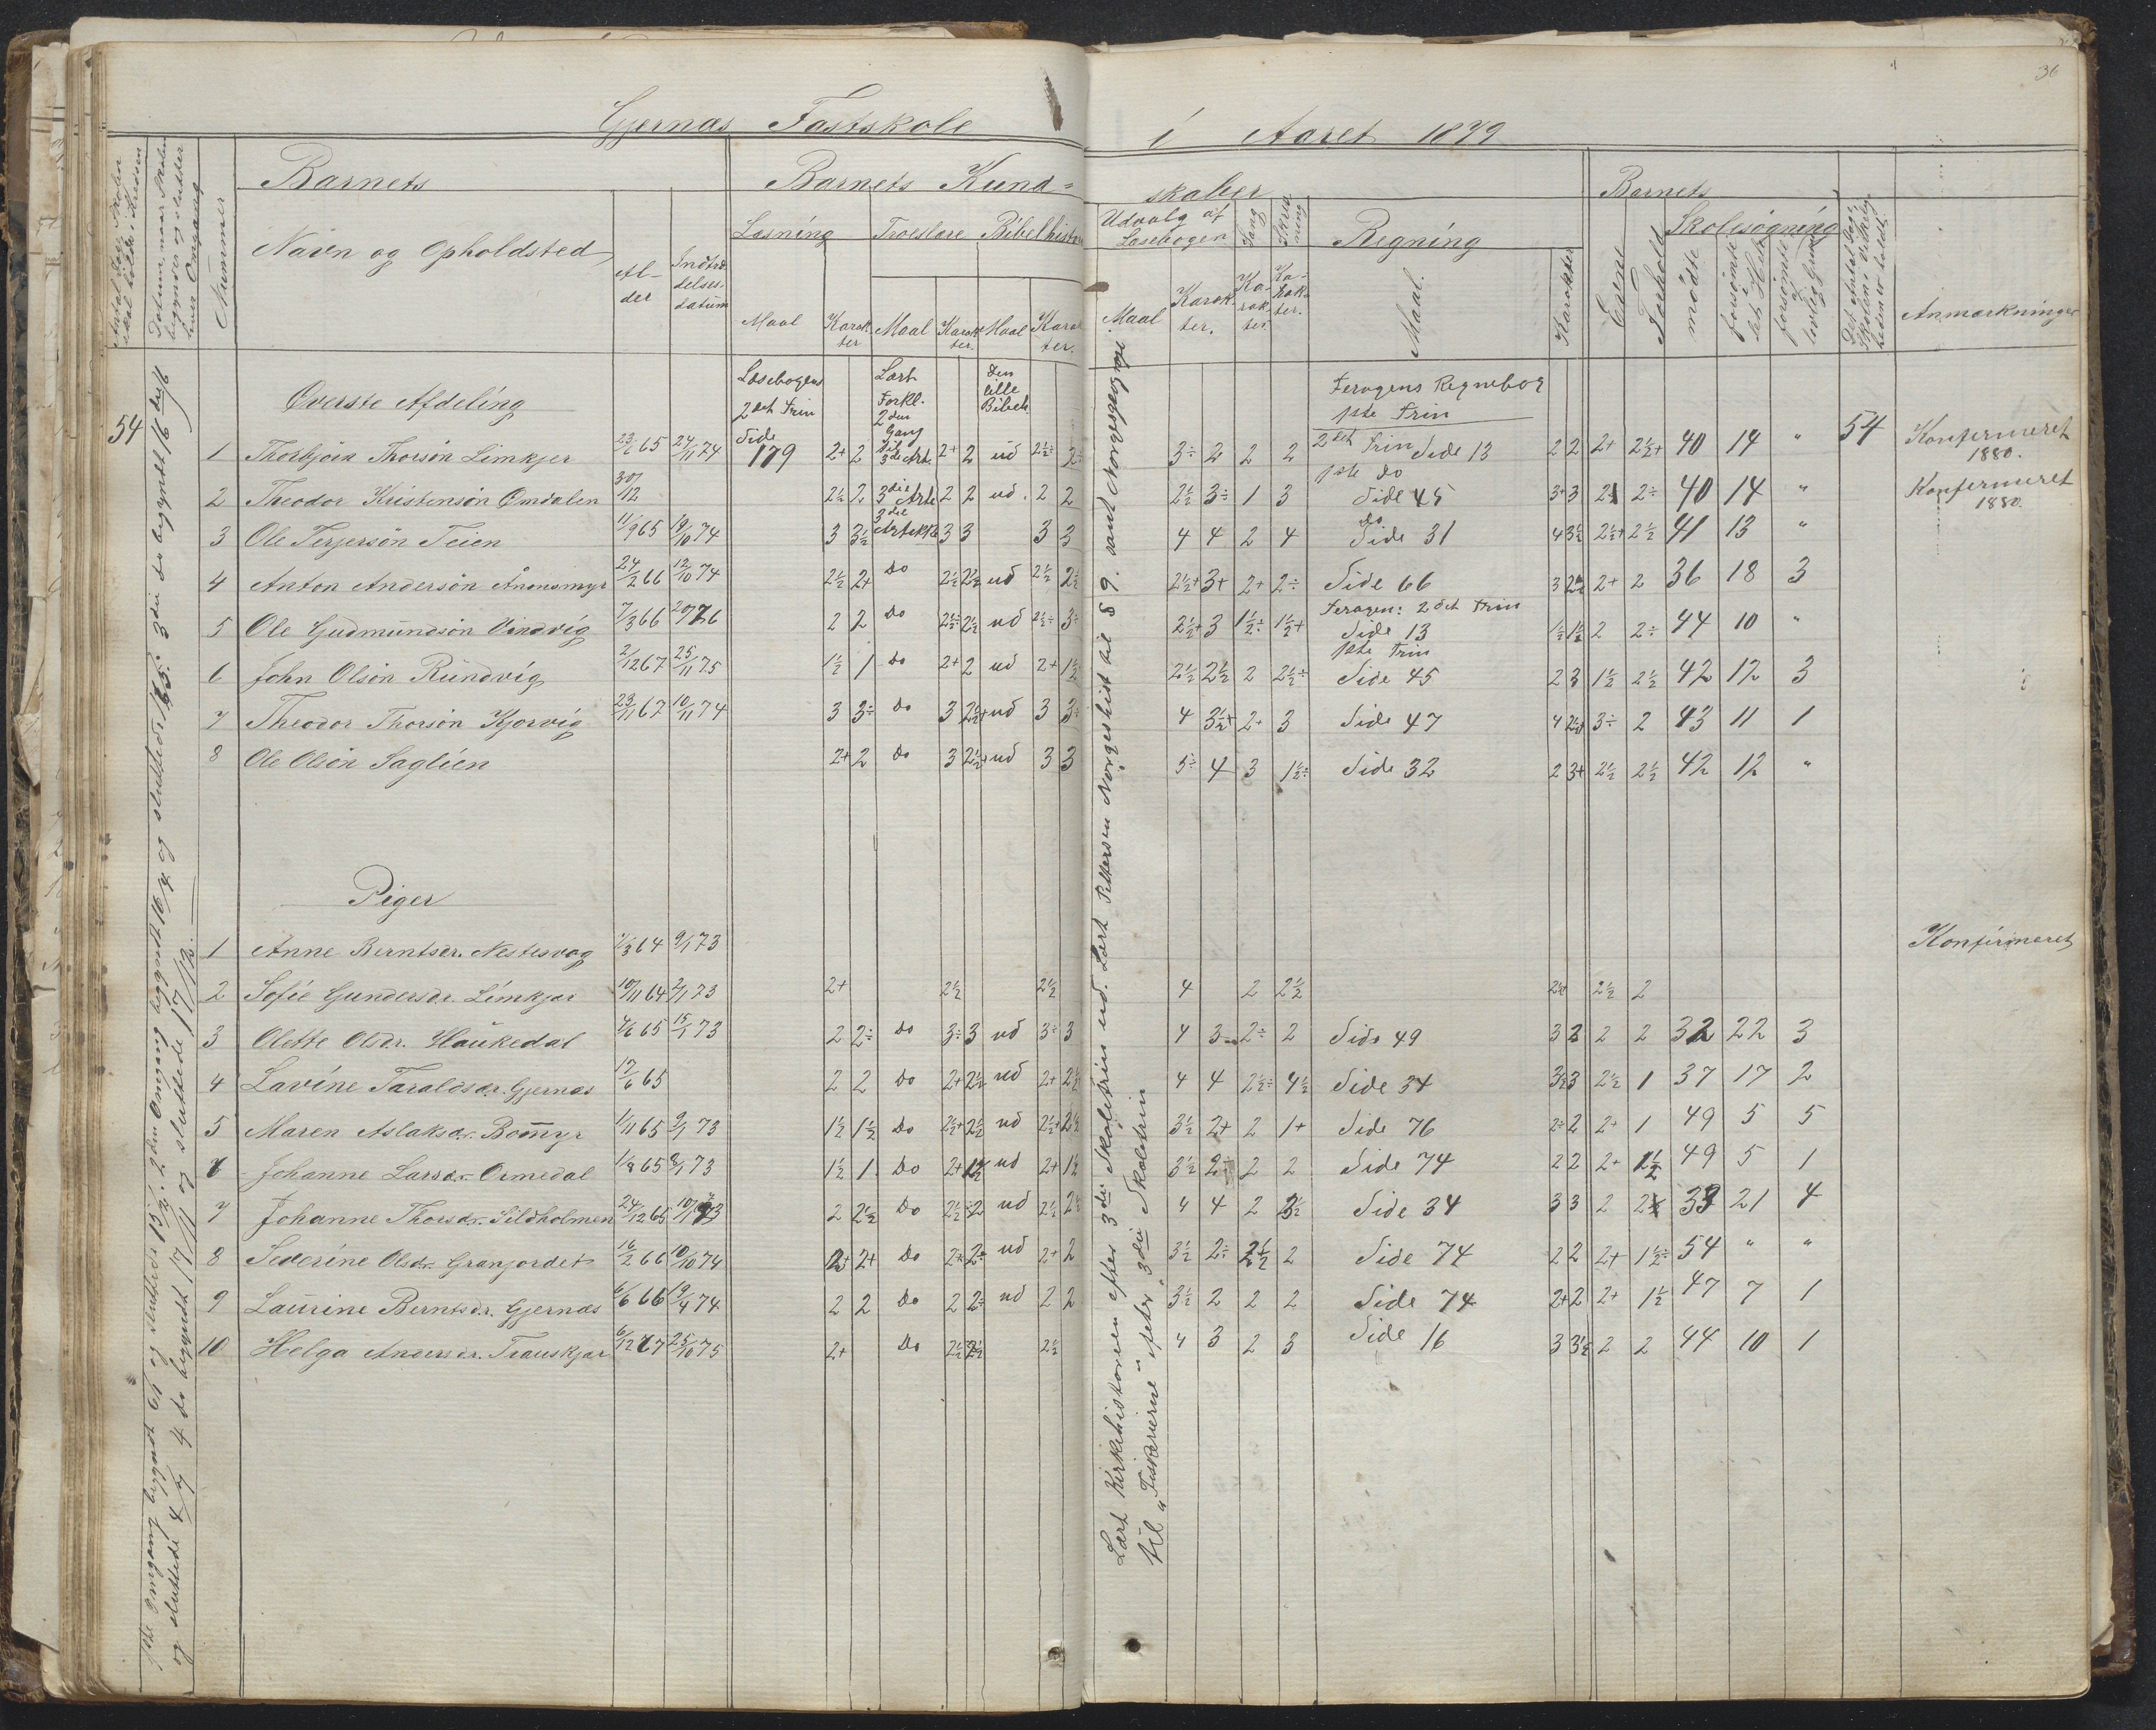 36
Gjernæs Fastskole i Aaret 1879
Barnets
Barnets Kund=
skaber
Barnets
Nummer
Navn og Opholdsted
Al-
der
Indtræ
delses-
datum
Læsning
Troeslære
Bibelhistorie
Udvalg af
Læsebogen
Sang
Skriv
ning
Regning
Evne
Forhold
Skolesøgning
mødte
Anmærkninger
Maal
Karak
ter
Maal
Karak
ter.
Maal
Karak
ter.
Maal
Karak
ter.
Ka-
rak-
ter.
Ka-
rak-
ter.
Maal.
Karakter
Øverste Afdeling
Læsebogens
2det Trin
Lært
Forkl.
2den
Gang
til
Den
lille
Bibelh.
Feragens Regnebog
1ste Trin
54
1 Thorbjørn Thorsøn Limkjer 23/6 65 24/11 74 Side 179 2+ 2 3die Art. 2+ 2 ud 2½÷ 2÷ 3÷ 2 2 2 2det Trin Side 13 2 2 2+ 2½+ 40 14 " 54 Konfirmeret 1880.
1ste Do
2 Theodor Kristensøn Omdalen 30/12 2½ 2 3die Arte 2 2 ud. 2 2 2½ 3÷ 1 3 Side 45 3+ 3 2 2÷ 40 14 " Konfirmeret 1880.
3 Ole Terjersøn Teien 11/9 65 19/10 74 3 3½ 3die Artikkel 3 3 3 3 4 4 2 4 do Side 31 4 3½ 2½+ 2½ 41 13 "
4 Anton Andersøn Ånonsmyr 24/2 66 12/10 74 2½ 2+ Do 2½ 2½ ud 2½ 2½ 2½+ 3+ 2+ 2÷ Side 66 3 2½ 2+ 2 36 18 3
Feragen: 2det Trin
5 Ole Gudmundsøn Vindvig 7/3 66 2 2 Do 2½÷ 2½ ud 2½÷ 3÷ 2½+ 3 1½÷ 1½+ Side 13 1½ 1½ 2 2÷ 44 10 "
1ste Trin
6 John Olsøn Rundvig 2/12 67 25/11 75 1½ 1 Do 2+ 2 ud 2+ 1½ 2½ 2½ 2 2½÷ Side 45 2 3 1½ 2½ 42 12 3
7 Theodor Thorsøn Kjørvig 23/11 67 10/11 74 3 3÷ Do 3 2½+ ud 3 3÷ 4 3½+ 2+ 3 Side 47 4 2½ 3÷ 2 43 11 1
8 Ole Olsøn Saglien 2+ 2 Do 3 2½+ ud 3 3 5÷ 4 3 1½÷ Side 32 2 3+ 2½ 2½ 42 12 "
Piger
1 Anne Berntsdr. Nestesvag 7/3 64 9/1 73 Konfirmeret
2 Sofie Gundersdr. Limkjær 10/11 64 2/1 73 2+ 2½ 2½ 4 2 2½ 2½ 2½ 2
3 Olette Olsdr. Haukedal 4/6 65 15/1 73 2 2÷ Do 3÷ 3 ud 3÷ 3 4 3 2÷ 2 Side 49 3 3 2 2 32 22 3
4 Lavine Taraldsdr. Gjernæs 17/6 65 2 2 Do 2+ 2½ ud 2+ 2½ 4 4 2½÷ 4½ Side 34 3½ 3 2½ 1 37 17 2
5 Maren Aslaksdr. Bommyr 1/11 65 9/1 73 1½ 1½ Do 2½+ 2½ ud 2½+ 2½ 3½ 2+ 2 1+ Side 76 2÷ 2 2+ 1 49 5 5
6 Johanne Larsdr. Ormedal 1/8 65 8/1 73 1½ 1 Do 2+ 1½ ud 2+ 1½ 3½ 2÷ 2 2 Side 74 2 2 2+ 1½ 49 5 1
7 Johanne Thorsdr. Sildholmen 24/12 65 10/1 73 2 2½ Do 2½ 2 ud 2½ 2½ 4 4 2 3½ Side 34 3 3 2 2 33 21 4
8 Severine Olsdr. Granjordet 16/2 66 10/10 74 2+ 2+ Do 2+ 2÷ ud 2+ 2 3½ 2÷ 2½ 2 Side 74 2 2 2+ 1½÷ 54 " "
9 Laurine Berntsdr. Gjernæs 6/6 66 19/4 74 2 2 Do 2 2÷ ud 2 2 3½ 2 2 2 Side 74 2+ 2 2+ 1½ 47 7 1
10 Helga Andersdr. Trauskjær 6/12 67 25/10 75 2+ Do 2½ 2½ 2½ 4 3 2 3 Side 16 3 3½ 2 2 44 10 1
1ste Omgang begyndt og sluttede 15/2. 2den Omgang begyndt 16/4 og sluttede 3die do begyndt 16
og sluttede 4/9 4 do begyndt 17/11 og sluttede 17/12.
Lært Kirkehistorien efter 3die Skoletrin ud. Lært Pettersen Norgeshist til § 9. samt Norgesgeografi
til "Fiskerierne" efter 3die Skoletrin